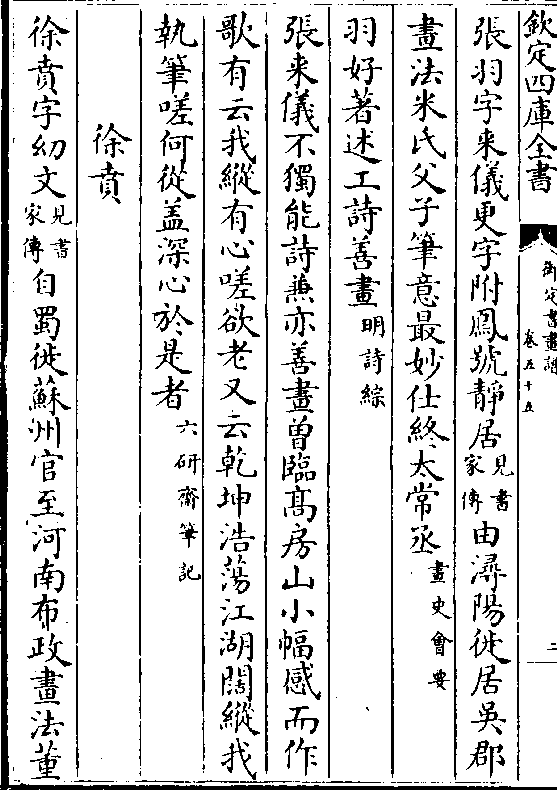 欽定四庫全書
御定書畫譜
卷五十五
二
張羽字来儀更字附鳳號靜居見書家傳由潯陽徙居吳郡
畫法米氏父子筆意最妙仕終太常丞畫史會要
羽好著述工詩善畫明詩綜
張来儀不獨能詩兼亦善畫曾臨髙房山小幅感而作
歌有云我縱有心嗟欲老又云乾坤浩蕩江湖闊縱我
執筆嗟何從盖深心於是者六研齋筆記
徐賁
徐賁字幼文見書家傳自蜀徙蘇州官至河南布政畫法董